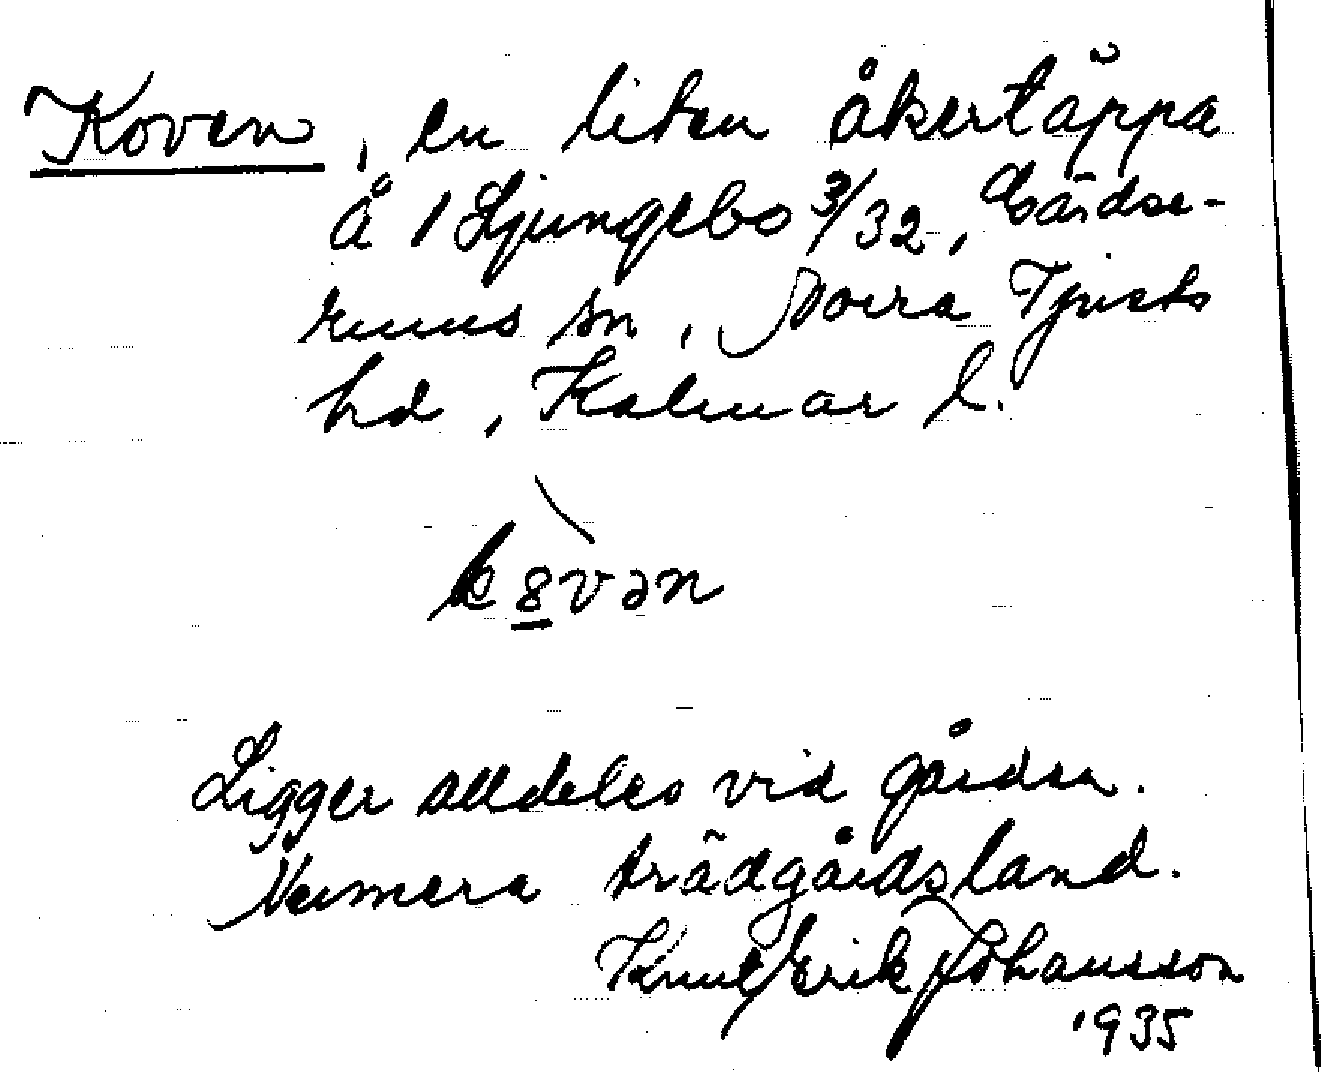 Koven, en liten åkertäppa
å 1 Ljungebo 3/32, Gärdse-
rums sn, Norra Tjusts
hd, Kalmar l.
k8vən
Ligger alldeles vid gården.
Numera trädgårdsland.
Knut Erik Johansson
1935